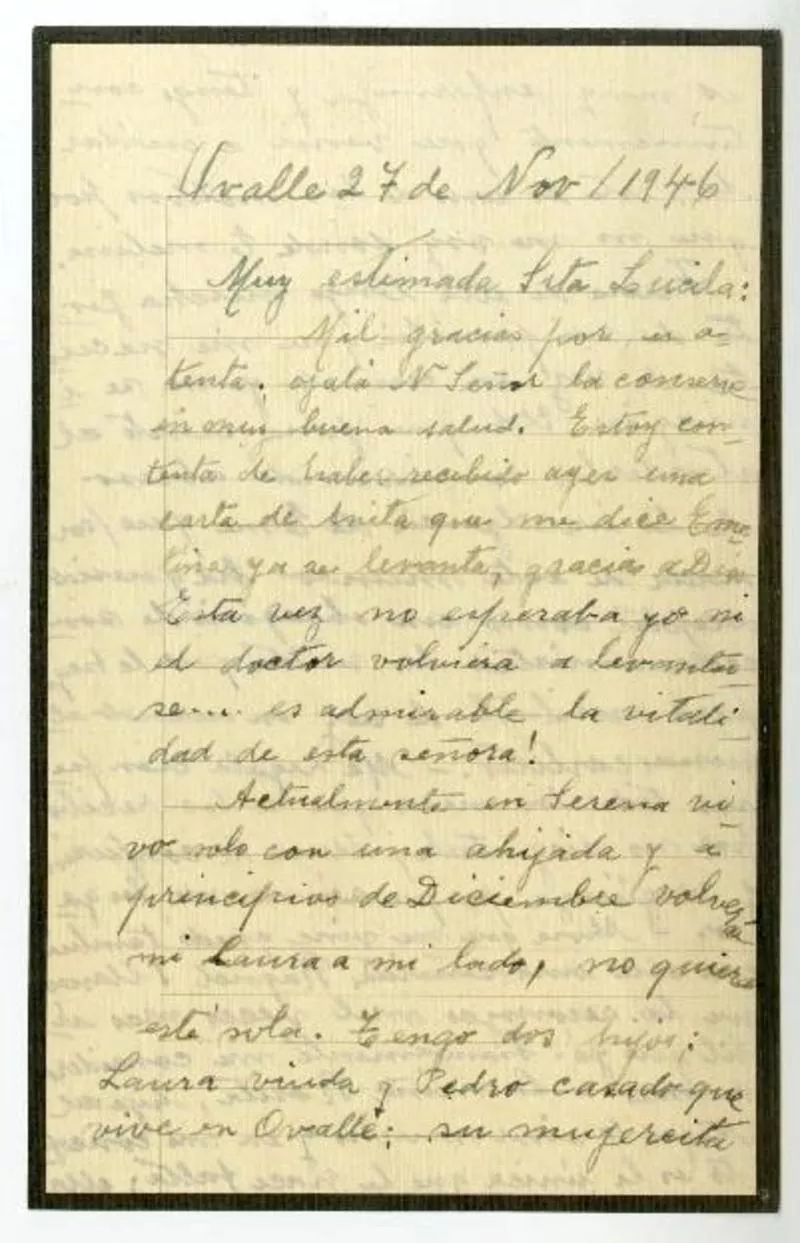 Ovalle 27 de Nov/1946
Muy estimada Srta Lucila:
Mil gracias por su a-
tenta. ojalá N Señor la conserve
en muy buena salud. Estoy con-
tenta de haber recibido ayer una
carta de Anita que me dice Eme-
lina ya se levanta, gracias a Dios
Esta vez no esperaba yo ni
el doctor volviera a levantar
se... es admirable la vitali
dad de esta señora!
Actualmente en Serena vi
vo solo con una ahijada y a
principios de Diciembre volverá
mi Laura a mi lado, no quiere
esté sola. Tengo dos hijos:
Laura viuda y Pedro casado que
vive en Ovalle; su mujercita